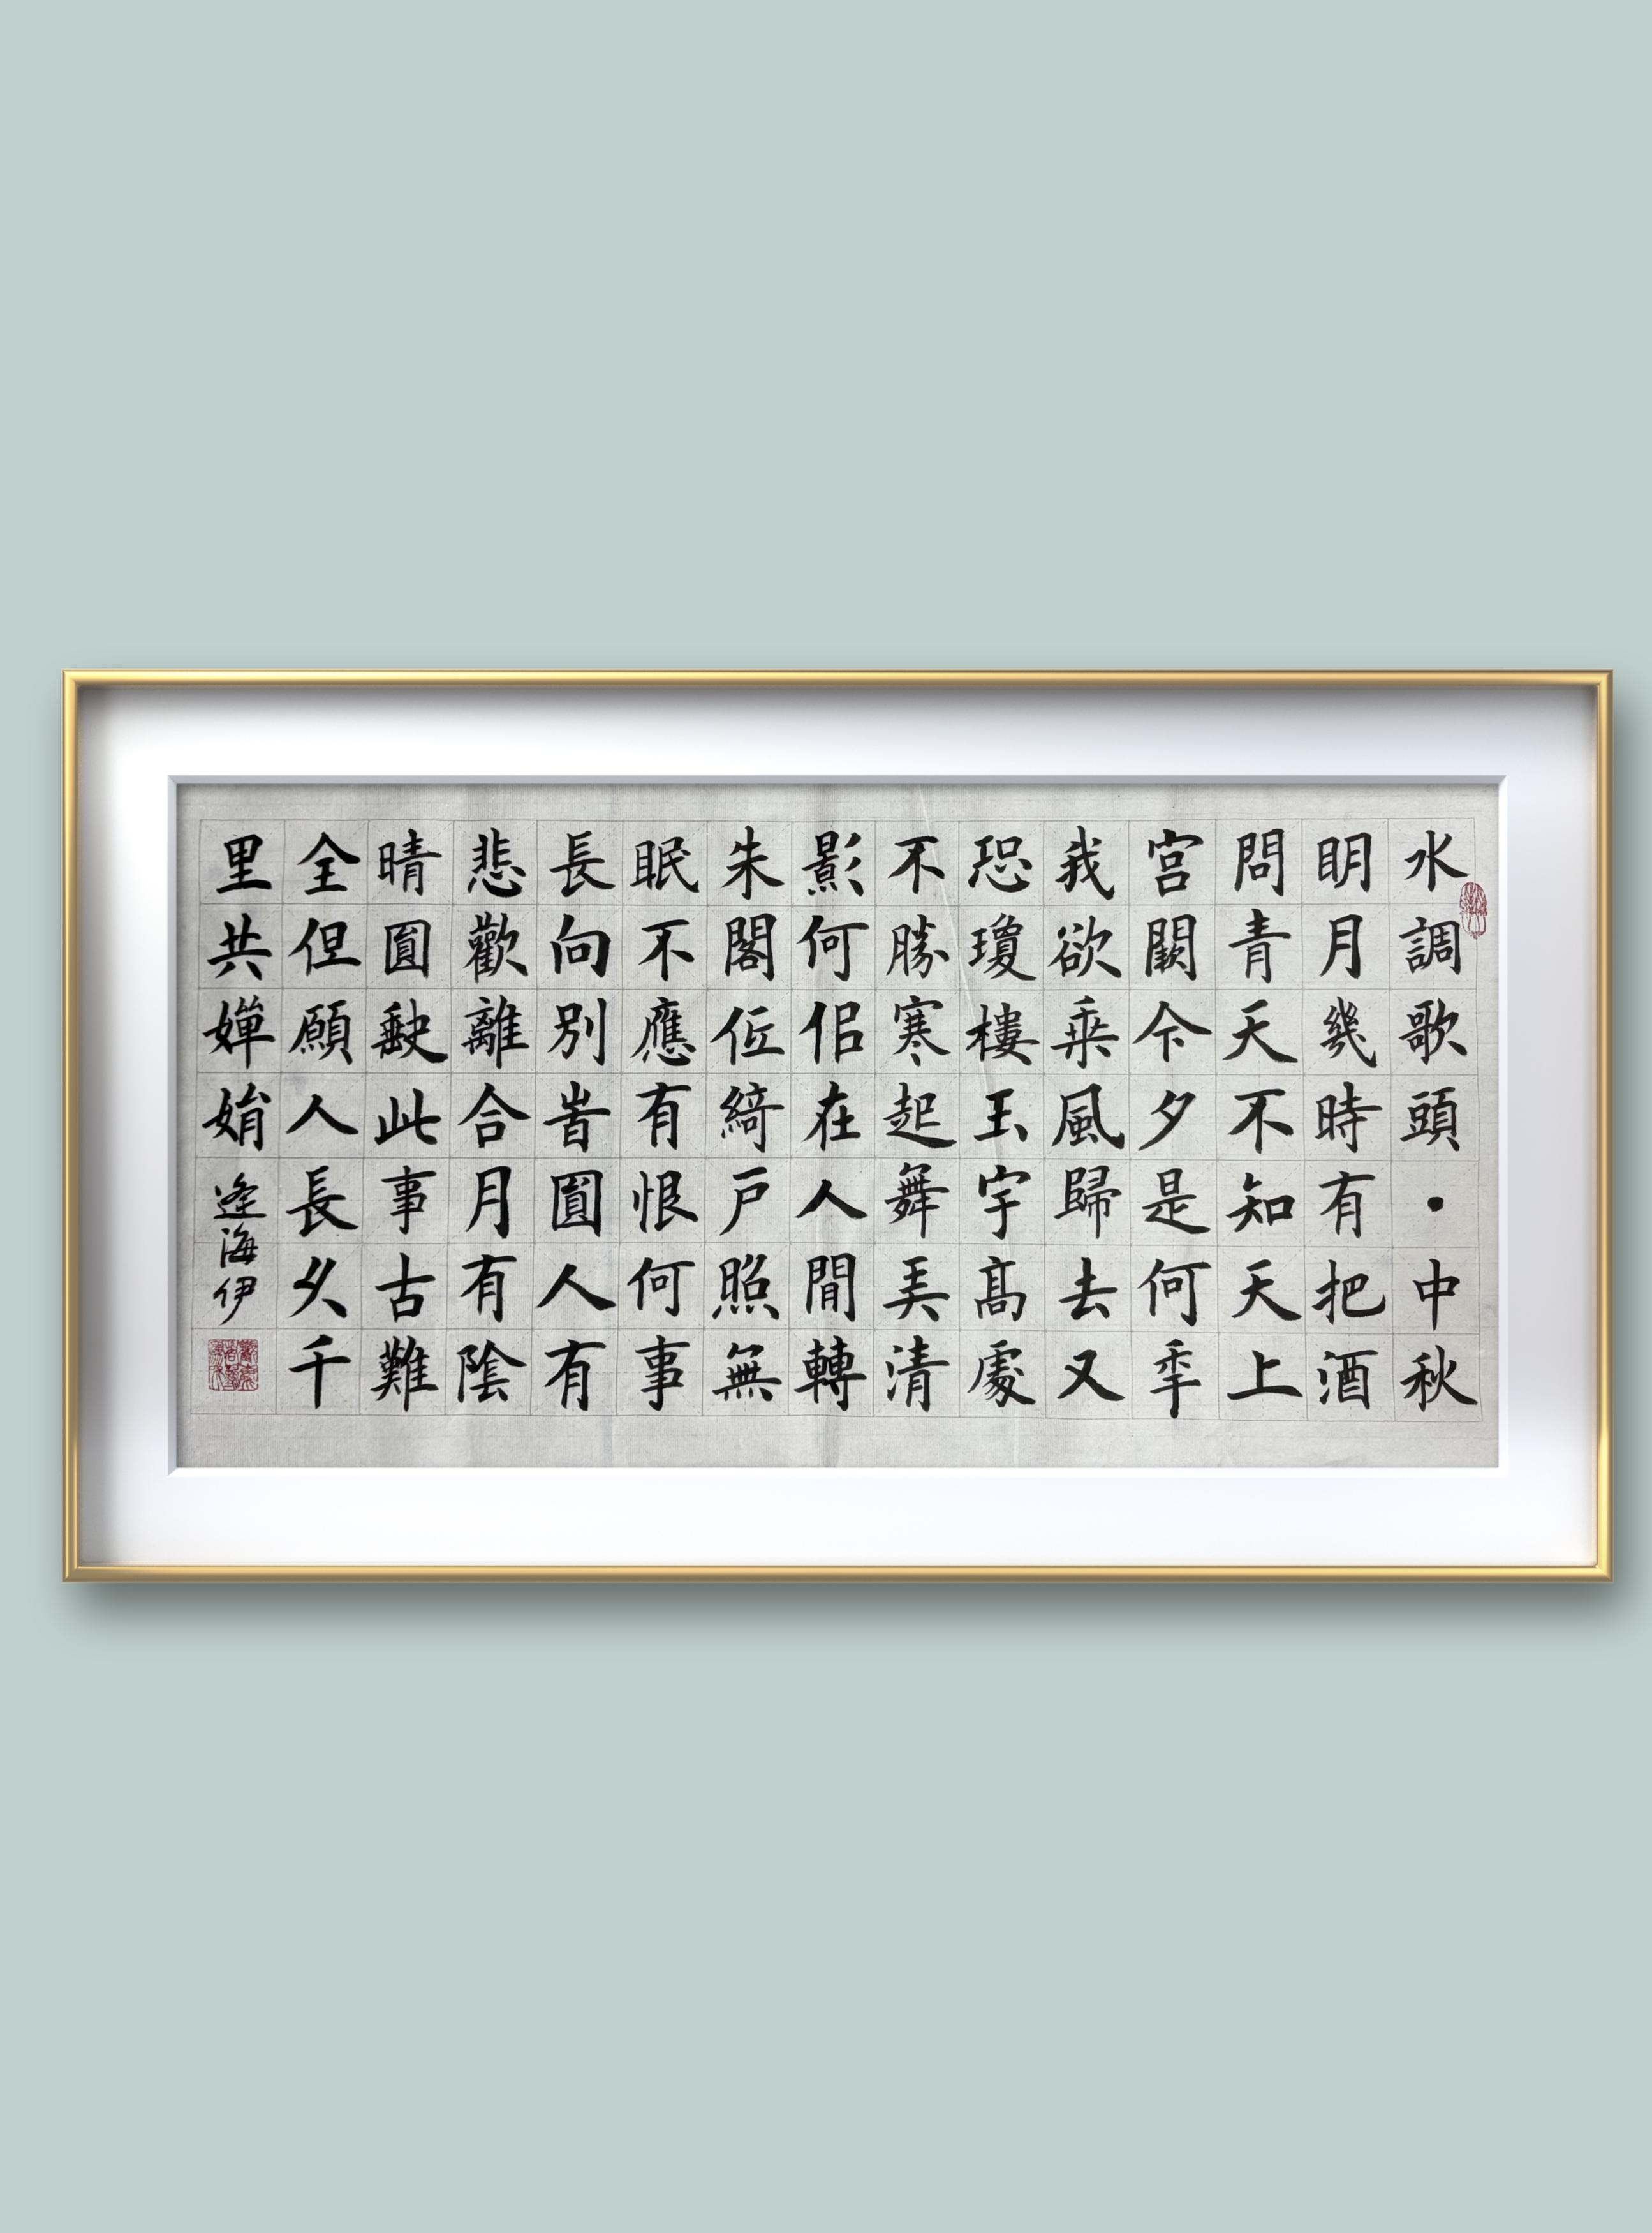 水調歌頭·中秋
明月幾時有把酒
問青天不知天上
宮闕今夕是何秊
我欲乘風歸去又
恐瓊樓玉宇高處
不勝寒起舞弄清
影何佀在人間轉
朱閣低綺户照無
眠不應有恨何事
長向別旹圓人有
悲歡離合月有陰
晴圓缺此事古難
全但願人長久千
里共嬋娟
逢海伊